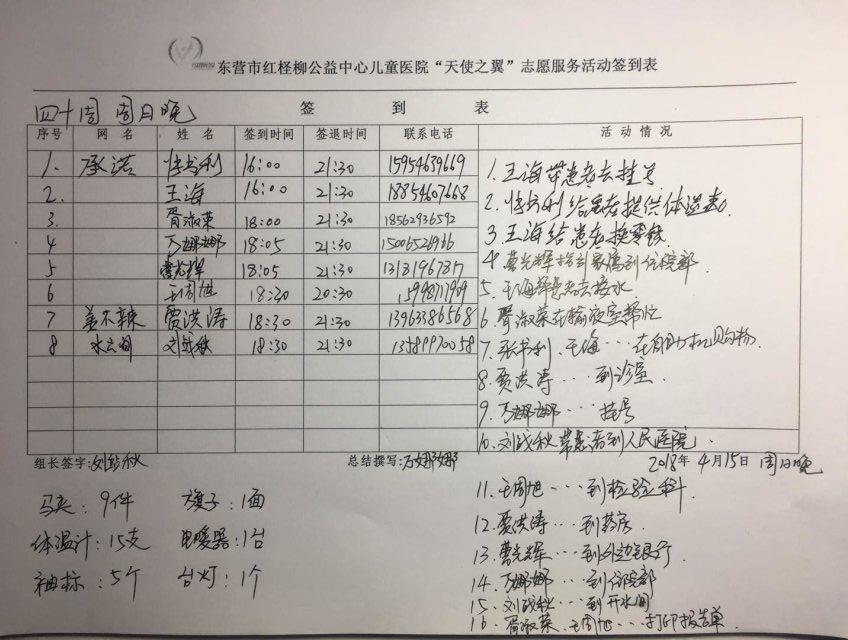 东营市红柽柳公益中心儿童医院“天使之翼”志愿服务活动签到表
四十周 周日晚
签 到 表
序号 网名 姓名 签到时间 签退时间 联系电话 活动情况
1. 承诺 张书利 16:00 21:30 15954639669
2. 王海 16:00 21:30 18854607668
3. 胥淑荣 18:00 21:30 18562936592
4 万娜娜 18:05 21:30 15006526966
5 曹光辉 18:05 21:30
6 王周旭 18:30 20:30 15998717969
7 姜不辣 贾洪涛 18:30 21:30 13963386568
8 水云间 刘战秋 18:30 21:30 13589970058
1. 王海带患者去挂号
2. 张书利给患者提供体温表。
3. 王海给患者换零钱
4. 曹光辉指引家属到住院部.
5. 王海帮患者去接水
6. 胥淑荣在输液室帮忙
7. 张书利、王海…在自助机购物.
8. 贾洪涛…到诊室.
9. 万娜娜…挂号
10. 刘战秋带患者到人民医院.
组长签字:刘战秋 总结撰写:万娜娜 2018年4月15日 周日晚
马夹:9件 旗子:1面
体温计:15支 电暖器:1台
袖标:5个 台灯:1个
11. 王周旭…到检验科
12. 贾洪涛…到药房.
13. 曹光辉…到外边银行.
14. 万娜娜…到住院部
15. 刘战秋…到开水间
16. 胥淑荣、王周旭…打印报告单.